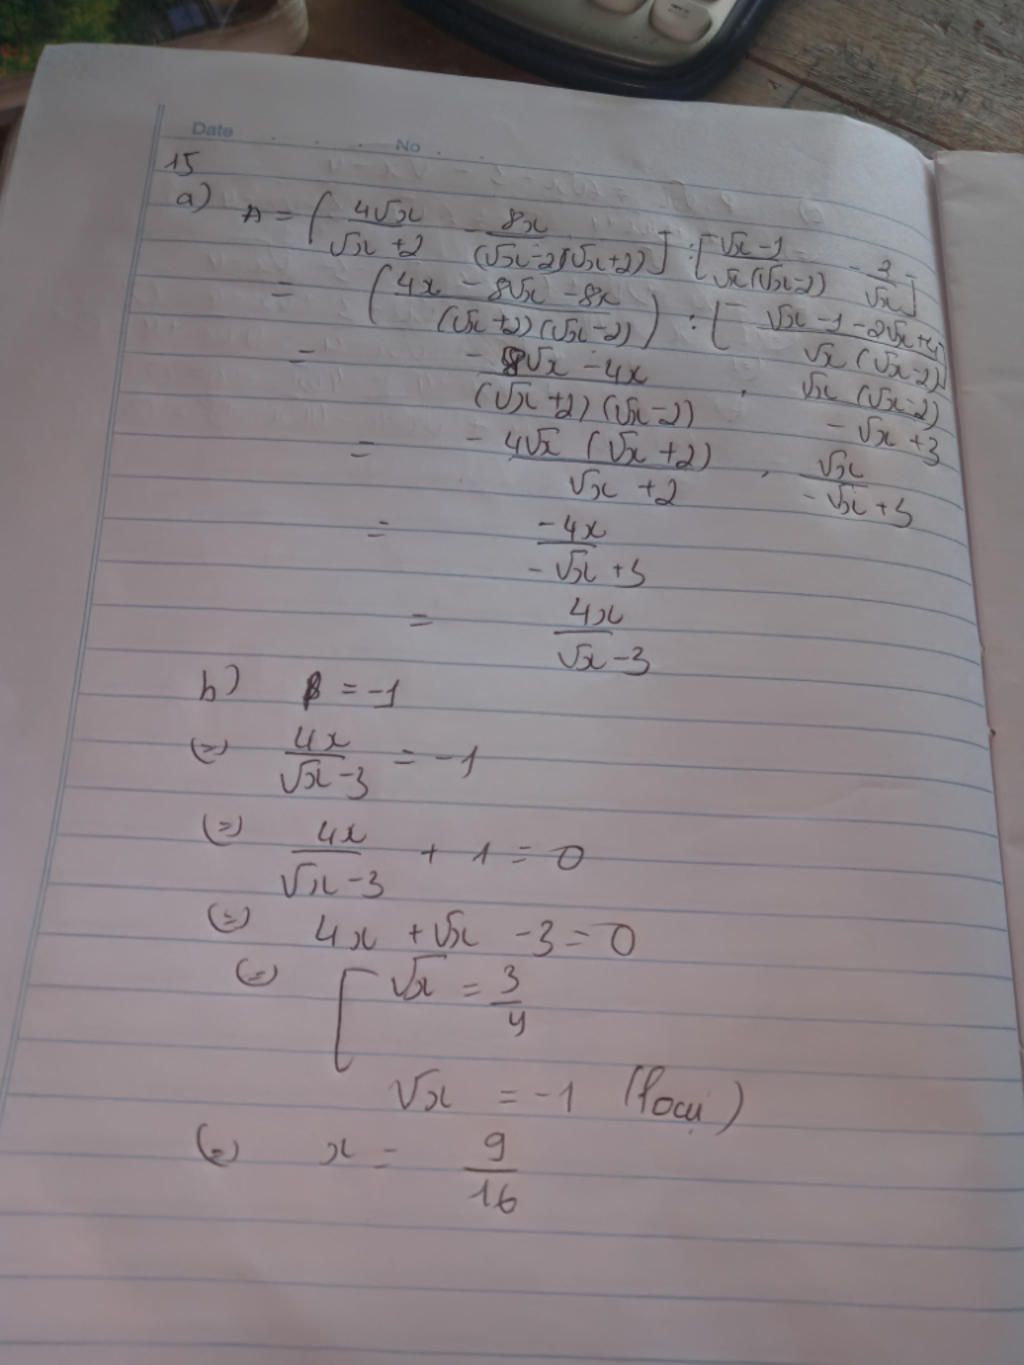 Date No
15
a) A = ( 4√x / (√x + 2) - 8x / ((√x - 2)(√x + 2)) ] : [ (√x - 1) / (√x(√x - 2)) - 2 / √x ]
= ( (4x - 8√x - 8x) / ((√x + 2)(√x - 2)) ) : [ (√x - 1 - 2√x + 4) / (√x(√x - 2)) ]
= (-8√x - 4x) / ((√x + 2)(√x - 2)) . √x(√x - 2) / (-√x + 3)
= -4√x(√x + 2) / (√x + 2) . √x / (-√x + 3)
= -4x / (-√x + 3)
= 4x / (√x - 3)
b) B = -1
(=) 4x / (√x - 3) = -1
(=) 4x / (√x - 3) + 1 = 0
(=) 4x + √x - 3 = 0
(=) [ √x = 3/4
√x = -1 (loại)
(=) x = 9/16